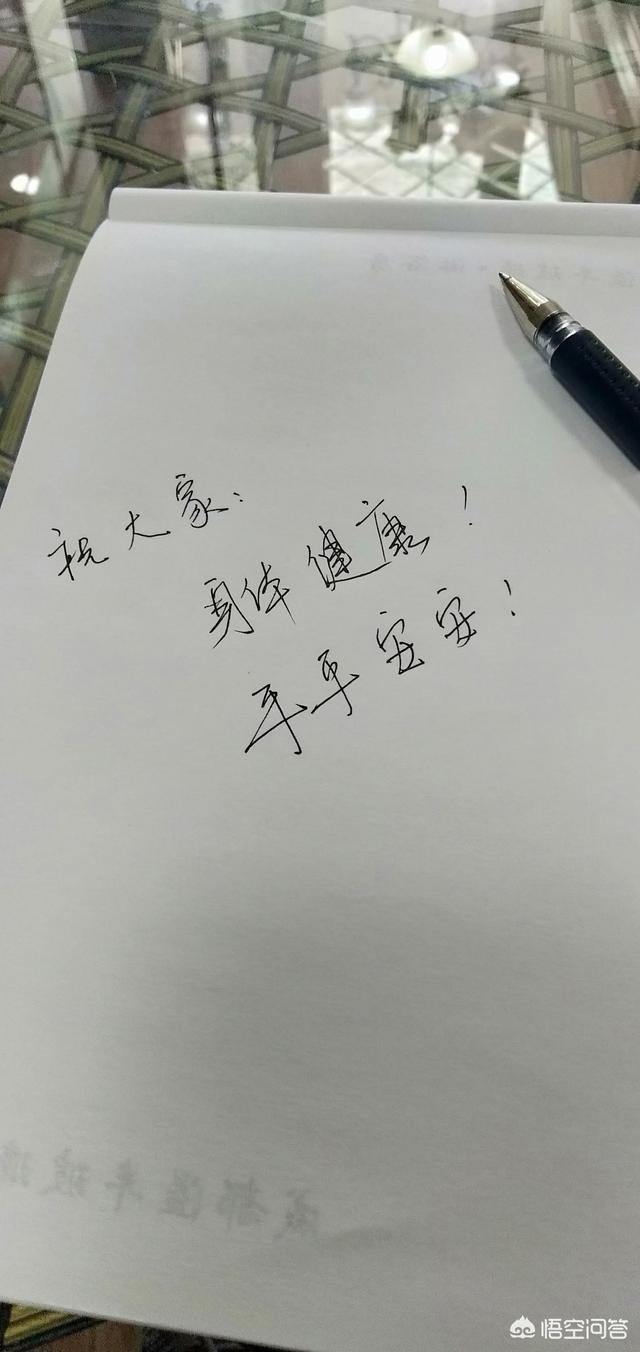 祝大家:
身体健康!
平平安安!
悟空问答